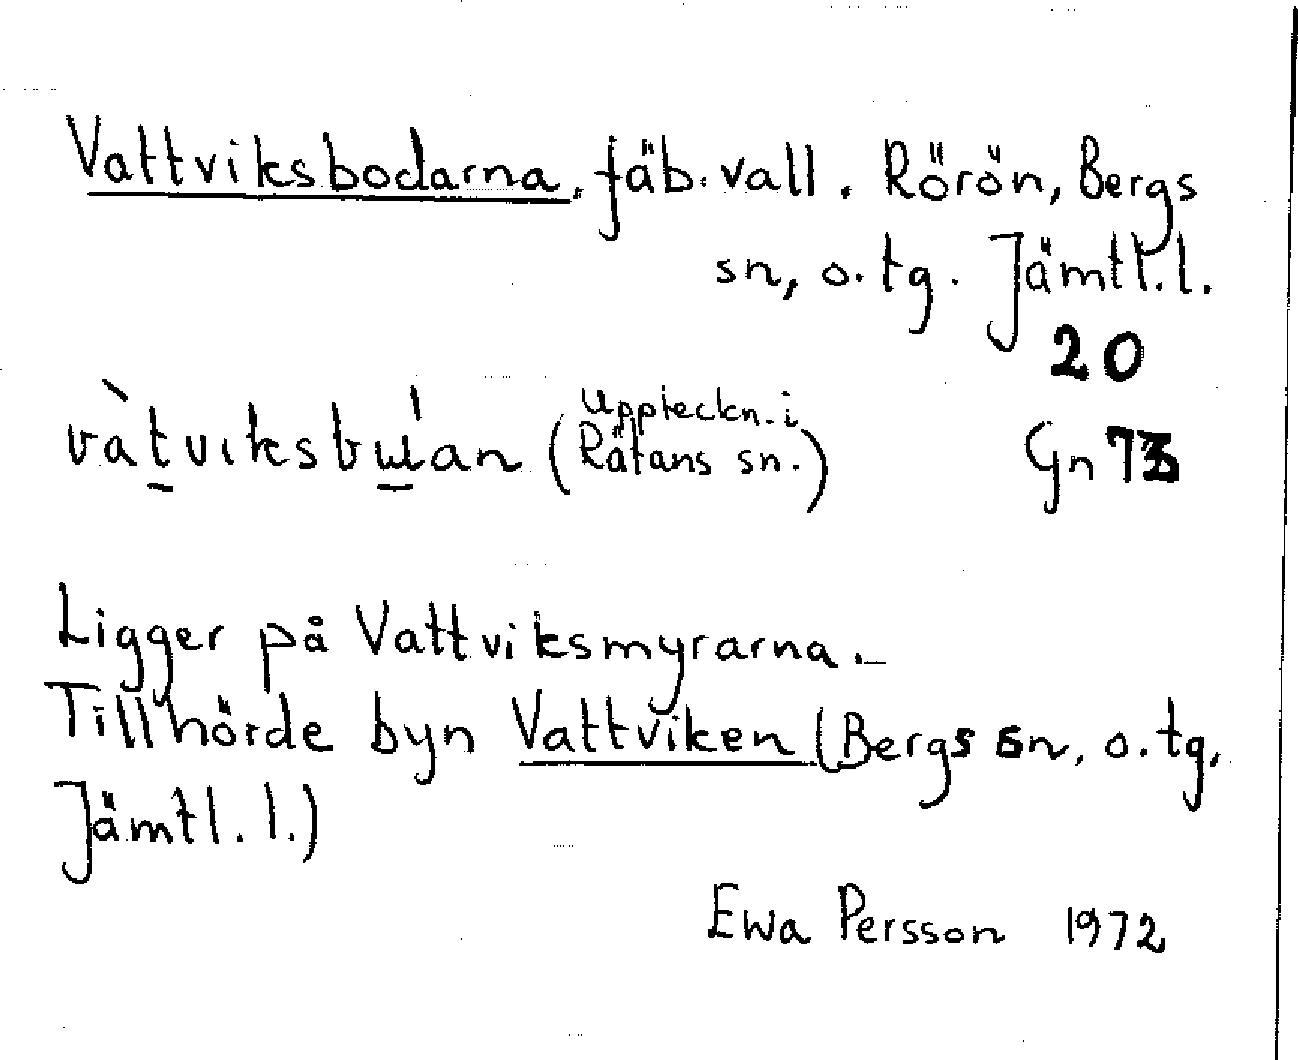 Vattviksbodarna, fäb.vall. Rörön, Bergs
sn, o.tg. Jämtl.l.
20
vàt̠viksbɯ̠́an (Uppteckn. i
Rätans sn.) Gn 73
Ligger på Vattviksmyrarna.–
Tillhörde byn Vattviken (Bergs sn, o.tg,
Jämtl. l.)
Ewa Persson 1972